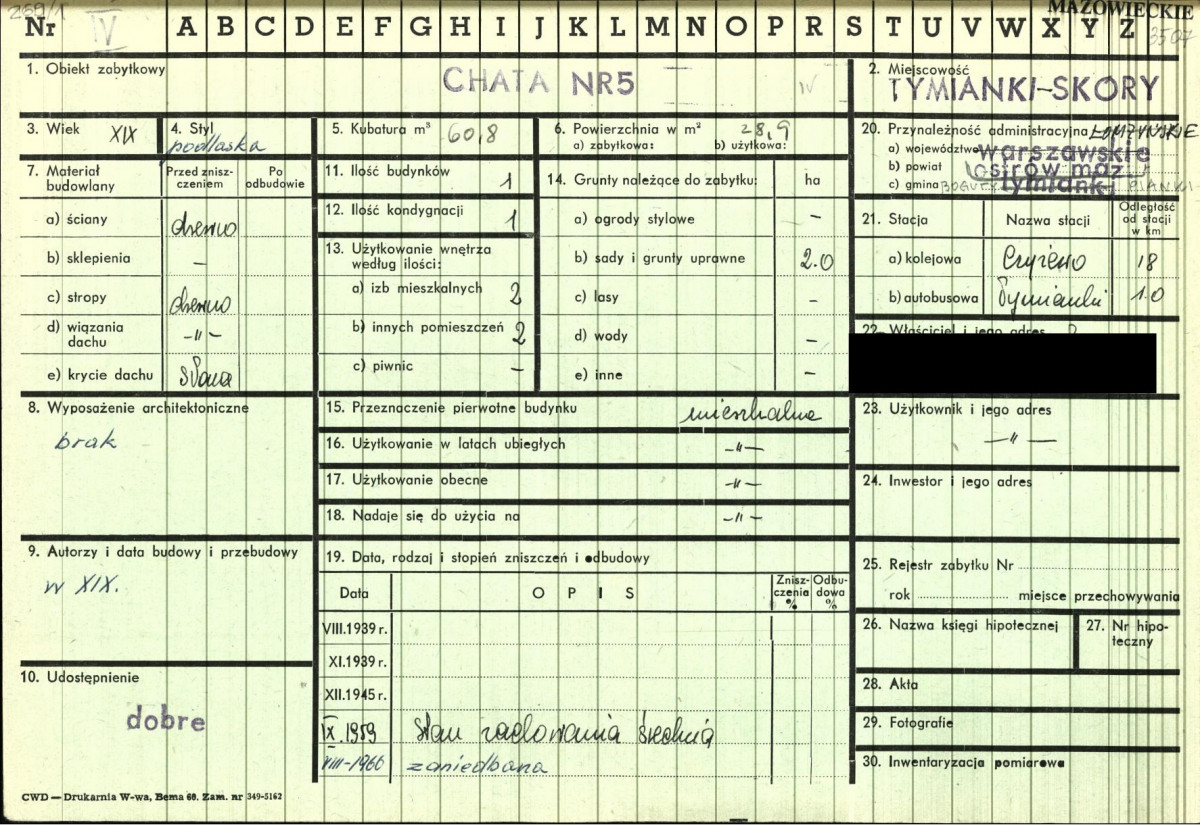 269/1
MAZOWIECKIE
3507
Nr IV A B C D E F G H I J K L M N O P R S T U V W X Y Z
1. Obiekt zabytkowy
CHATA NR 5
IV
2. Miejscowość
TYMIANKI-SKORY
3. Wiek XIX
4. Styl
podlaska
5. Kubatura m³ 60,8
6. Powierzchnia w m² 28,9
a) zabytkowa: b) użytkowa:
20. Przynależność administracyjna ŁOMŻYŃSKIE
a) województwo warszawskie
b) powiat ostrów maz.
c) gmina tymianki BOGUTY PIANKI
7. Materiał budowlany
Przed zniszczeniem
Po odbudowie
a) ściany drewno
b) sklepienia –
c) stropy drewno
d) wiązania dachu –"–
e) krycie dachu słoma
11. Ilość budynków 1
12. Ilość kondygnacji 1
13. Użytkowanie wnętrza według ilości:
a) izb mieszkalnych 2
b) innych pomieszczeń 2
c) piwnic –
14. Grunty należące do zabytku: ha
a) ogrody stylowe –
b) sady i grunty uprawne 2.0
c) lasy –
d) wody –
e) inne –
21. Stacja
Nazwa stacji
Odległość od stacji w km
a) kolejowa Czyżewo 18
b) autobusowa Tymianki 1.0
22. Właściciel i jego adres
8. Wyposażenie architektoniczne
brak
15. Przeznaczenie pierwotne budynku mieszkalne
16. Użytkowanie w latach ubiegłych –"–
17. Użytkowanie obecne –"–
18. Nadaje się do użycia na –"–
23. Użytkownik i jego adres
–"–
24. Inwestor i jego adres
9. Autorzy i data budowy i przebudowy
w XIX.
19. Data, rodzaj i stopień zniszczeń i odbudowy
Data
OPIS
Zniszczenia %
Odbudowa %
VIII.1939 r.
XI.1939 r.
XII.1945 r.
IX.1959 stan zachowania średni
VIII-1966 zaniedbana
25. Rejestr zabytku Nr
rok miejsce przechowywania
26. Nazwa księgi hipotecznej
27. Nr hipoteczny
10. Udostępnienie
dobre
28. Akta
29. Fotografie
30. Inwentaryzacja pomiarowa
CWD — Drukarnia W-wa, Bema 60. Zam. nr 349-5162